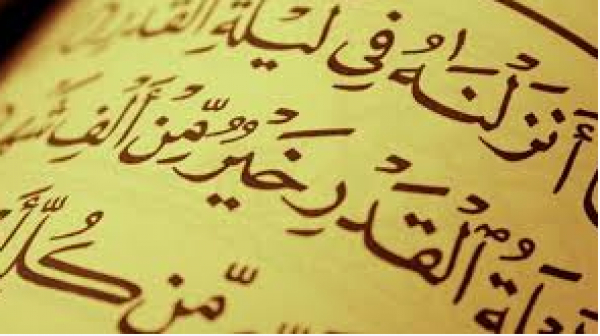 أَنزَلْنَٰهُ فِي لَيْلَةِ الْقَدْرِ
الْقَدْرِ خَيْرٌ مِّنْ أَلْفِ شَهْرٍ
مِّن كُلِّ